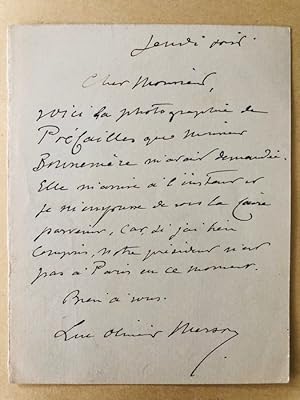 Jeudi soir.
Cher Monsieur,
voici la photographie de
Préfailles que Monsieur
Bonnemère m'avait demandée.
Elle m'arrive à l'instant et
je m'empresse de vous la faire
parvenir, car, si j'ai bien
compris, notre président n'est
pas à Paris en ce moment.
Bien à vous.
Luc Olivier Merson